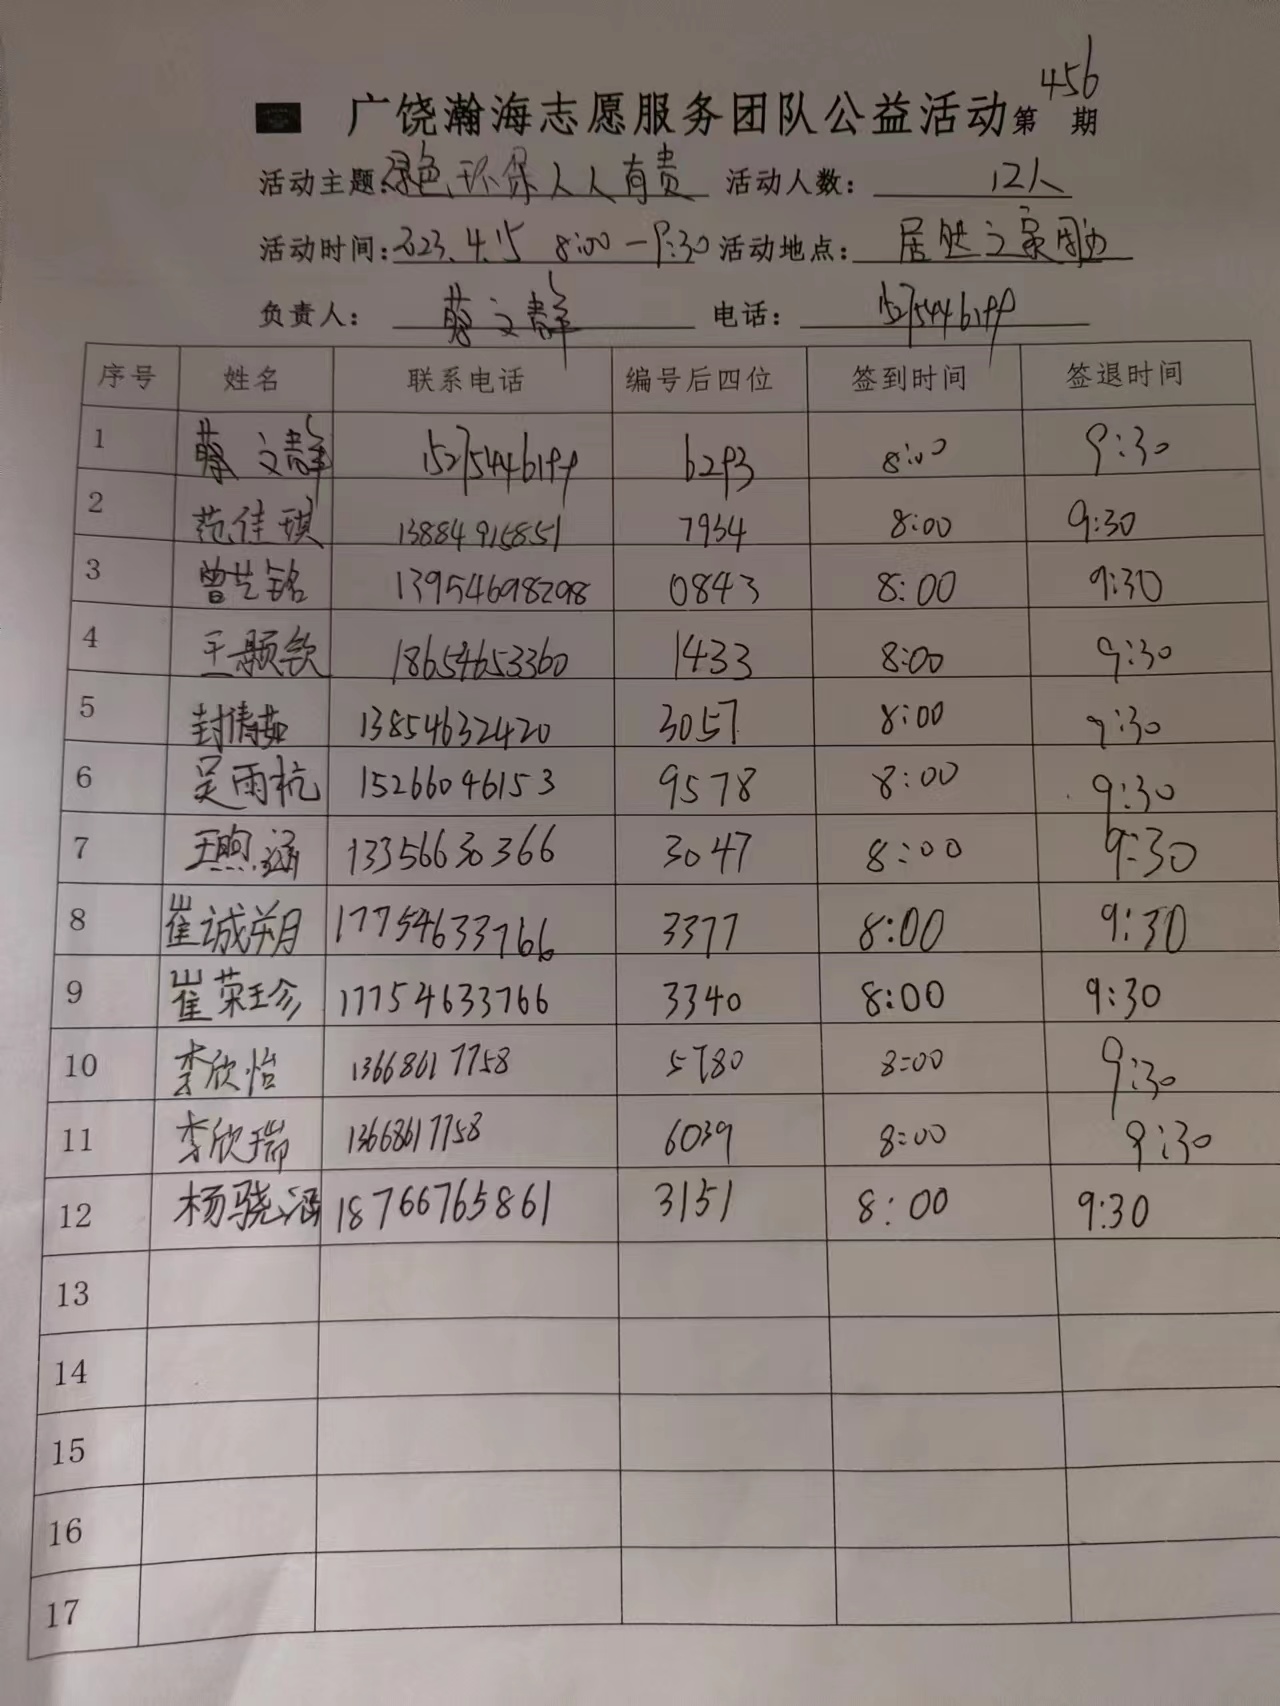 广饶瀚海志愿服务团队公益活动第456期
活动主题:绿色环保人人有责 活动人数: 12人
活动时间:2023.4.15 8:00-9:30 活动地点: 居然之家周边
负责人: 蔡文群 电话: 15275446199
序号 姓名 联系电话 编号后四位 签到时间 签退时间
1 蔡文群 15275446199 6293 8:00 9:30
2 范佳琪 13884915851 7934 8:00 9:30
3 曾艺铭 13954698298 0843 8:00 9:30
4 王颢钦 18654653360 1433 8:00 9:30
5 封倩茹 13854632420 3057 8:00 9:30
6 吴雨杭 15266046153 9578 8:00 9:30
7 王煦涵 13356630366 3047 8:00 9:30
8 崔诚朔 17754633766 3377 8:00 9:30
9 崔荣珍 17754633766 3340 8:00 9:30
10 李欣怡 13668617758 5780 8:00 9:30
11 李欣瑞 13668617758 6039 8:00 9:30
12 杨骁涵 18766765861 3151 8:00 9:30
13
14
15
16
17